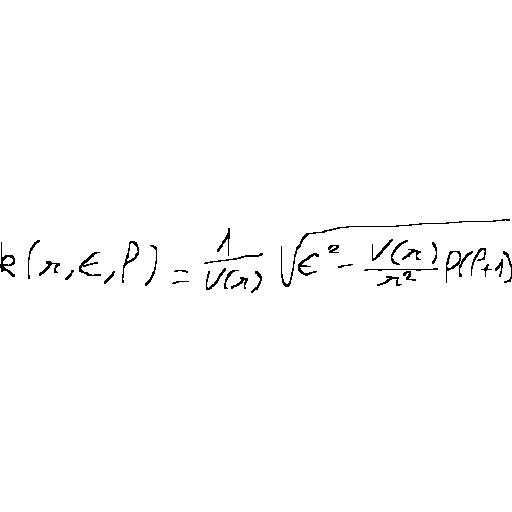 k(r, ε, l) = \frac{1}{V(r)} \sqrt{ε^2 - \frac{V(r)}{r^2} l(l+1)}